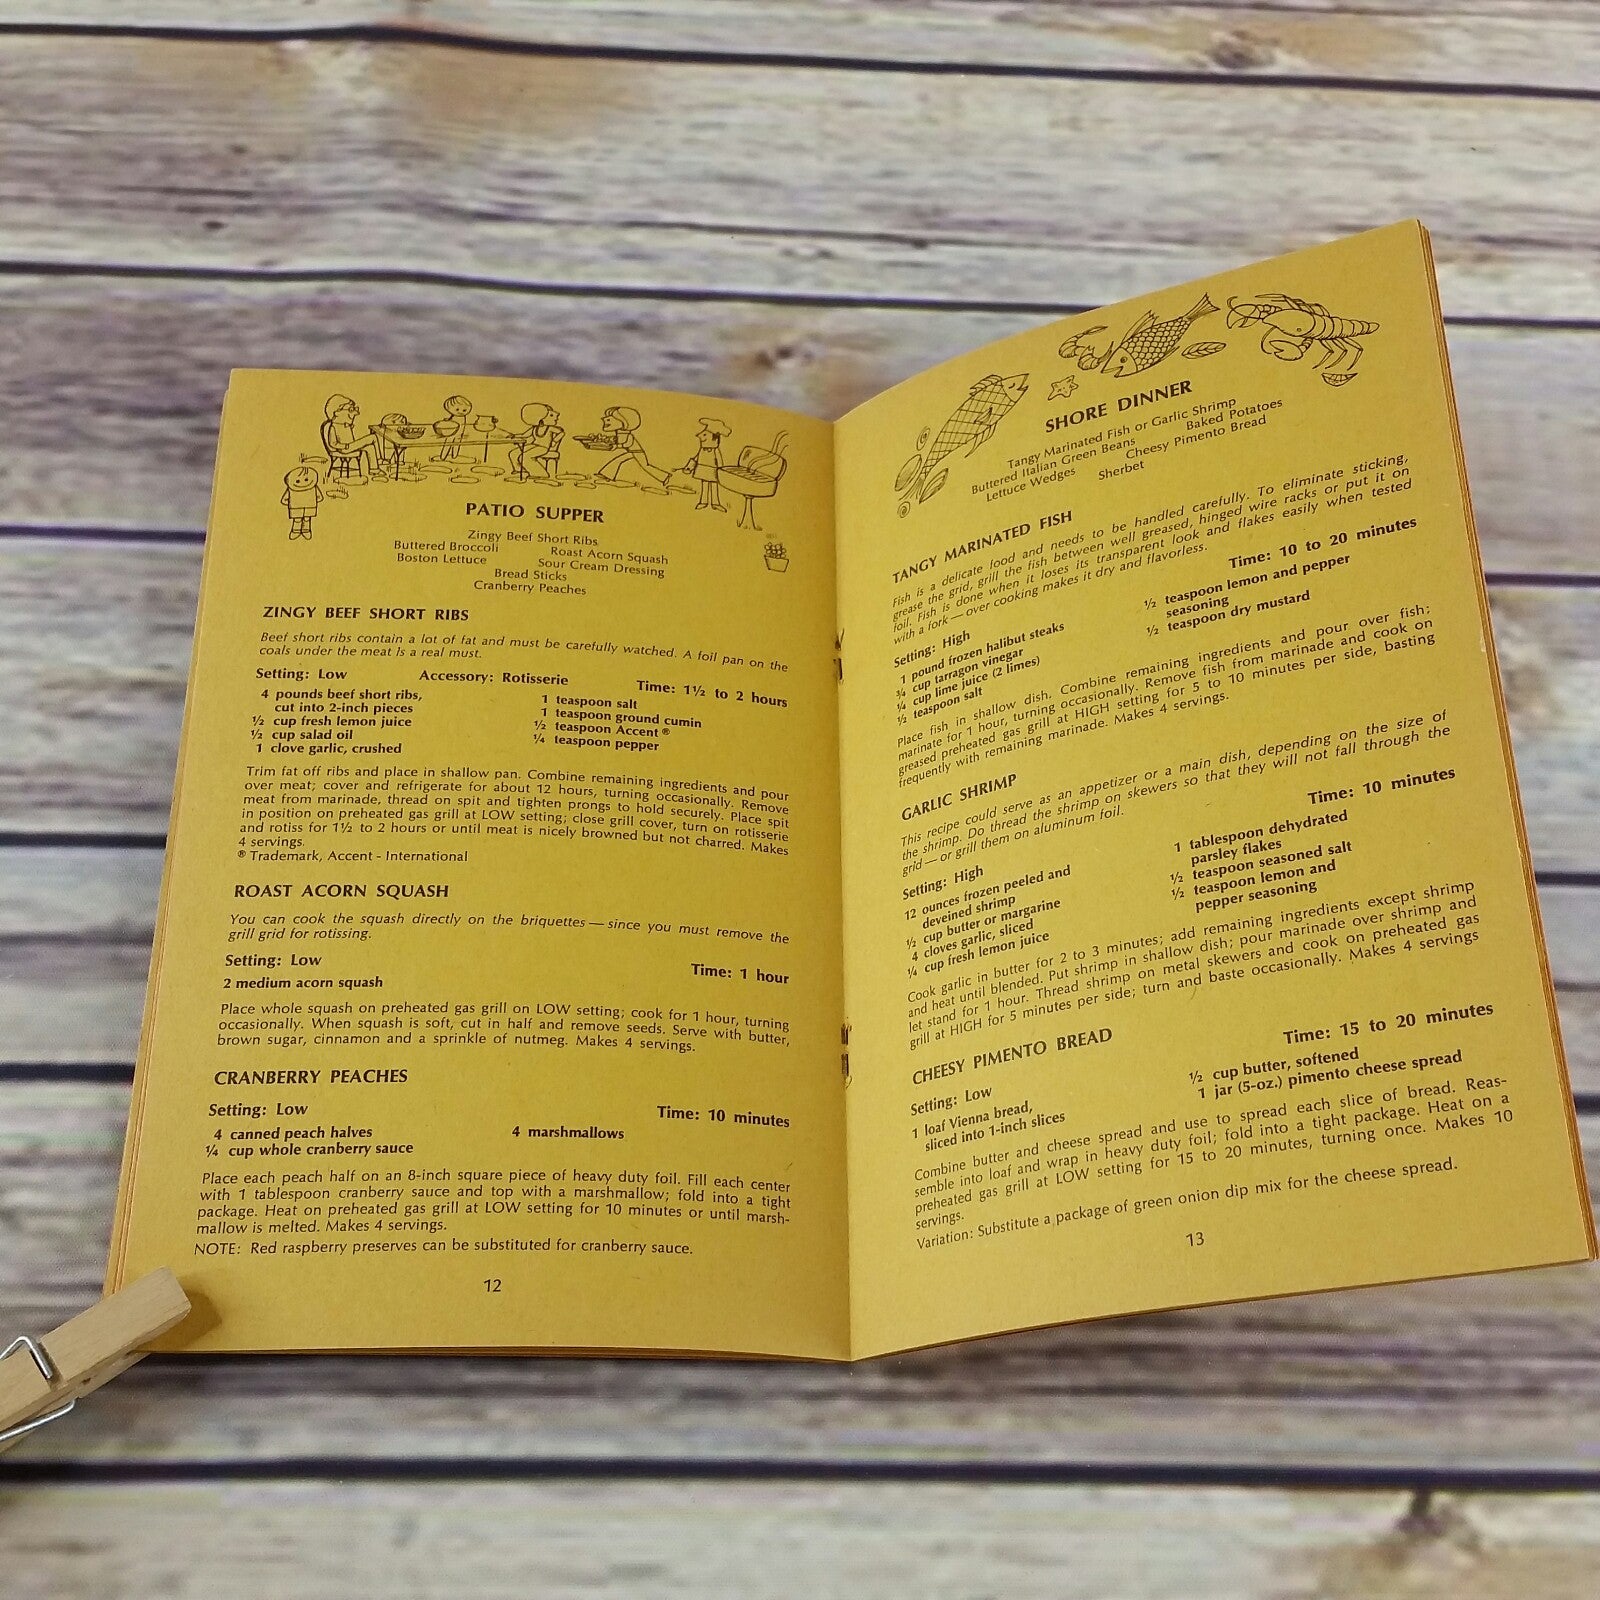 PATIO SUPPER
Zingy Beef Short Ribs
Buttered Broccoli Roast Acorn Squash
Boston Lettuce Sour Cream Dressing
Bread Sticks
Cranberry Peaches
ZINGY BEEF SHORT RIBS
Beef short ribs contain a lot of fat and must be carefully watched. A foil pan on the
coals under the meat is a real must.
Setting: Low Accessory: Rotisserie Time: 1½ to 2 hours
4 pounds beef short ribs,
cut into 2-inch pieces
½ cup fresh lemon juice
½ cup salad oil
1 clove garlic, crushed
1 teaspoon salt
1 teaspoon ground cumin
½ teaspoon Accent®
¼ teaspoon pepper
Trim fat off ribs and place in shallow pan. Combine remaining ingredients and pour
over meat; cover and refrigerate for about 12 hours, turning occasionally. Remove
meat from marinade, thread on spit and tighten prongs to hold securely. Place spit
in position on preheated gas grill at LOW setting; close grill cover, turn on rotisserie
and rotiss for 1½ to 2 hours or until meat is nicely browned but not charred. Makes
4 servings.
® Trademark, Accent - International
ROAST ACORN SQUASH
You can cook the squash directly on the briquettes — since you must remove the
grill grid for rotissing.
Setting: Low Time: 1 hour
2 medium acorn squash
Place whole squash on preheated gas grill on LOW setting; cook for 1 hour, turning
occasionally. When squash is soft, cut in half and remove seeds. Serve with butter,
brown sugar, cinnamon and a sprinkle of nutmeg. Makes 4 servings.
CRANBERRY PEACHES
Setting: Low Time: 10 minutes
4 canned peach halves
¼ cup whole cranberry sauce
4 marshmallows
Place each peach half on an 8-inch square piece of heavy duty foil. Fill each center
with 1 tablespoon cranberry sauce and top with a marshmallow; fold into a tight
package. Heat on preheated gas grill at LOW setting for 10 minutes or until marsh-
mallow is melted. Makes 4 servings.
NOTE: Red raspberry preserves can be substituted for cranberry sauce.
12
SHORE DINNER
Tangy Marinated Fish or Garlic Shrimp
Buttered Italian Green Beans Baked Potatoes
Lettuce Wedges Cheesy Pimento Bread
Sherbet
TANGY MARINATED FISH
Fish is a delicate food and needs to be handled carefully. To eliminate sticking,
grease the grid, grill the fish between well greased, hinged wire racks or put it on
foil. Fish is done when it loses its transparent look and flakes easily when tested
with a fork — over cooking makes it dry and flavorless.
Setting: High Time: 10 to 20 minutes
1 pound frozen halibut steaks
¾ cup tarragon vinegar
¼ cup lime juice (2 limes)
½ teaspoon salt
½ teaspoon lemon and pepper
seasoning
½ teaspoon dry mustard
Place fish in shallow dish. Combine remaining ingredients and pour over fish;
marinate for 1 hour, turning occasionally. Remove fish from marinade and cook on
greased preheated gas grill at HIGH setting for 5 to 10 minutes per side, basting
frequently with remaining marinade. Makes 4 servings.
GARLIC SHRIMP
This recipe could serve as an appetizer or a main dish, depending on the size of
the shrimp. Do thread the shrimp on skewers so that they will not fall through the
grid — or grill them on aluminum foil.
Setting: High Time: 10 minutes
12 ounces frozen peeled and
deveined shrimp
½ cup butter or margarine
4 cloves garlic, sliced
¼ cup fresh lemon juice
1 tablespoon dehydrated
parsley flakes
½ teaspoon seasoned salt
½ teaspoon lemon and
pepper seasoning
Cook garlic in butter for 2 to 3 minutes; add remaining ingredients except shrimp
and heat until blended. Put shrimp in shallow dish; pour marinade over shrimp and
let stand for 1 hour. Thread shrimp on metal skewers and cook on preheated gas
grill at HIGH for 5 minutes per side; turn and baste occasionally. Makes 4 servings
CHEESY PIMENTO BREAD
Setting: Low Time: 15 to 20 minutes
1 loaf Vienna bread,
sliced into 1-inch slices
½ cup butter, softened
1 jar (5-oz.) pimento cheese spread
Combine butter and cheese spread and use to spread each slice of bread. Reas-
semble into loaf and wrap in heavy duty foil; fold into a tight package. Heat on a
preheated gas grill at LOW setting for 15 to 20 minutes, turning once. Makes 10
servings.
Variation: Substitute a package of green onion dip mix for the cheese spread.
13